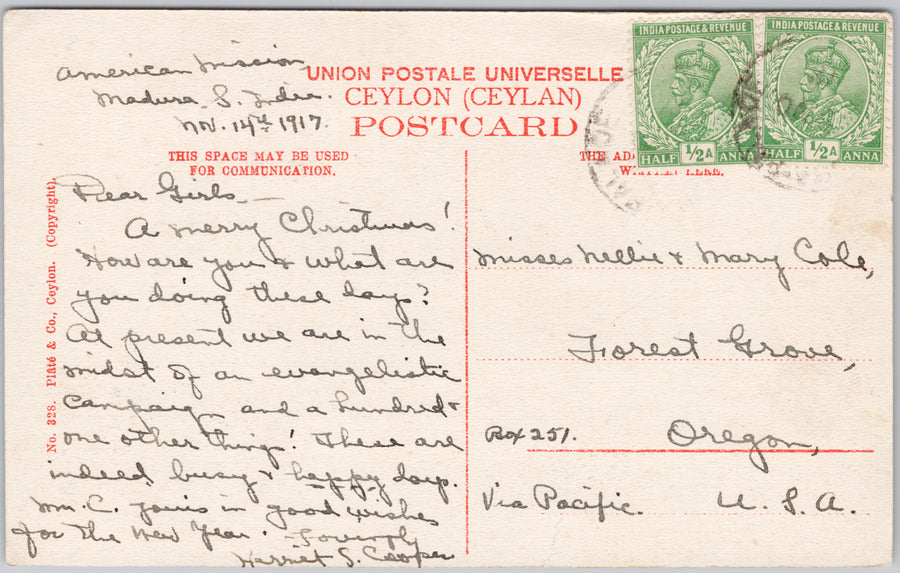 American Mission
Madura S. India.
Nov. 14th 1917.
UNION POSTALE UNIVERSELLE
CEYLON (CEYLAN)
POSTCARD
THIS SPACE MAY BE USED
FOR COMMUNICATION.
THE AD
INDIA POSTAGE & REVENUE
HALF ½A ANNA
INDIA POSTAGE & REVENUE
HALF ½A ANNA
No. 328. Plâté & Co., Ceylon. (Copyright).
Dear Girls —
A merry Christmas!
How are you & what are
you doing these days?
At present we are in the
midst of an evangelistic
campaign and a hundred &
one other things! These are
indeed busy & happy days.
Mr. C. joins in good wishes
for the New Year. Lovingly
Harriet S. Cooper
Misses Nellie & Mary Cole,
Forest Grove,
Box 251. Oregon,
Via Pacific. U. S. A.